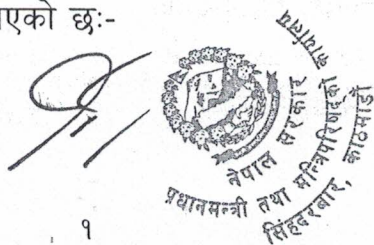 एको छः-
नेपाल सरकार
प्रधानमन्त्री तथा मन्त्रिपरिषद्को कार्यालय
सिंहदरबार, काठमाडौं
१